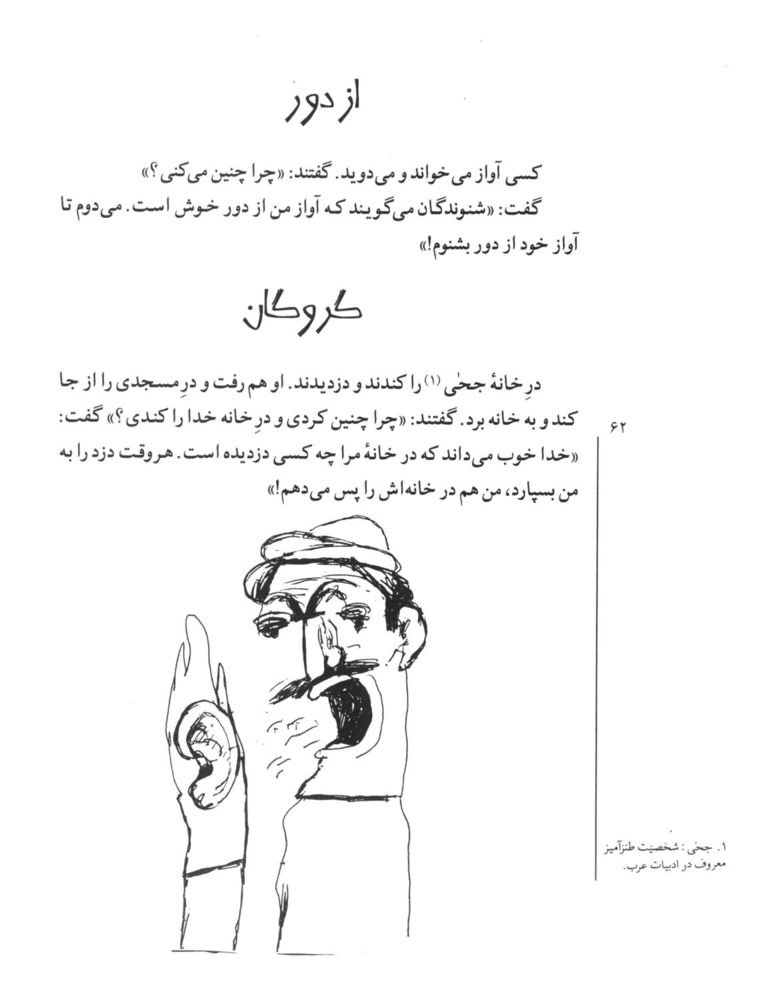 از دور
کسی آواز می‌خواند و می‌دوید. گفتند: «چرا چنین می‌کنی؟»
گفت: «شنوندگان می‌گویند که آواز من از دور خوش است. می‌دوم تا
آواز خود از دور بشنوم!»
گروگان
درِ خانهٔ جحٰی (۱) را کندند و دزدیدند. او هم رفت و درِ مسجدی را از جا
کند و به خانه برد. گفتند: «چرا چنین کردی و درِ خانه خدا را کندی؟» گفت:
«خدا خوب می‌داند که در خانهٔ مرا چه کسی دزدیده است. هر وقت دزد را به
من بسپارد، من هم در خانه‌اش را پس می‌دهم!»
۶۲
۱. جحٰی: شخصیّت طنزآمیز
معروف در ادبیات عرب.